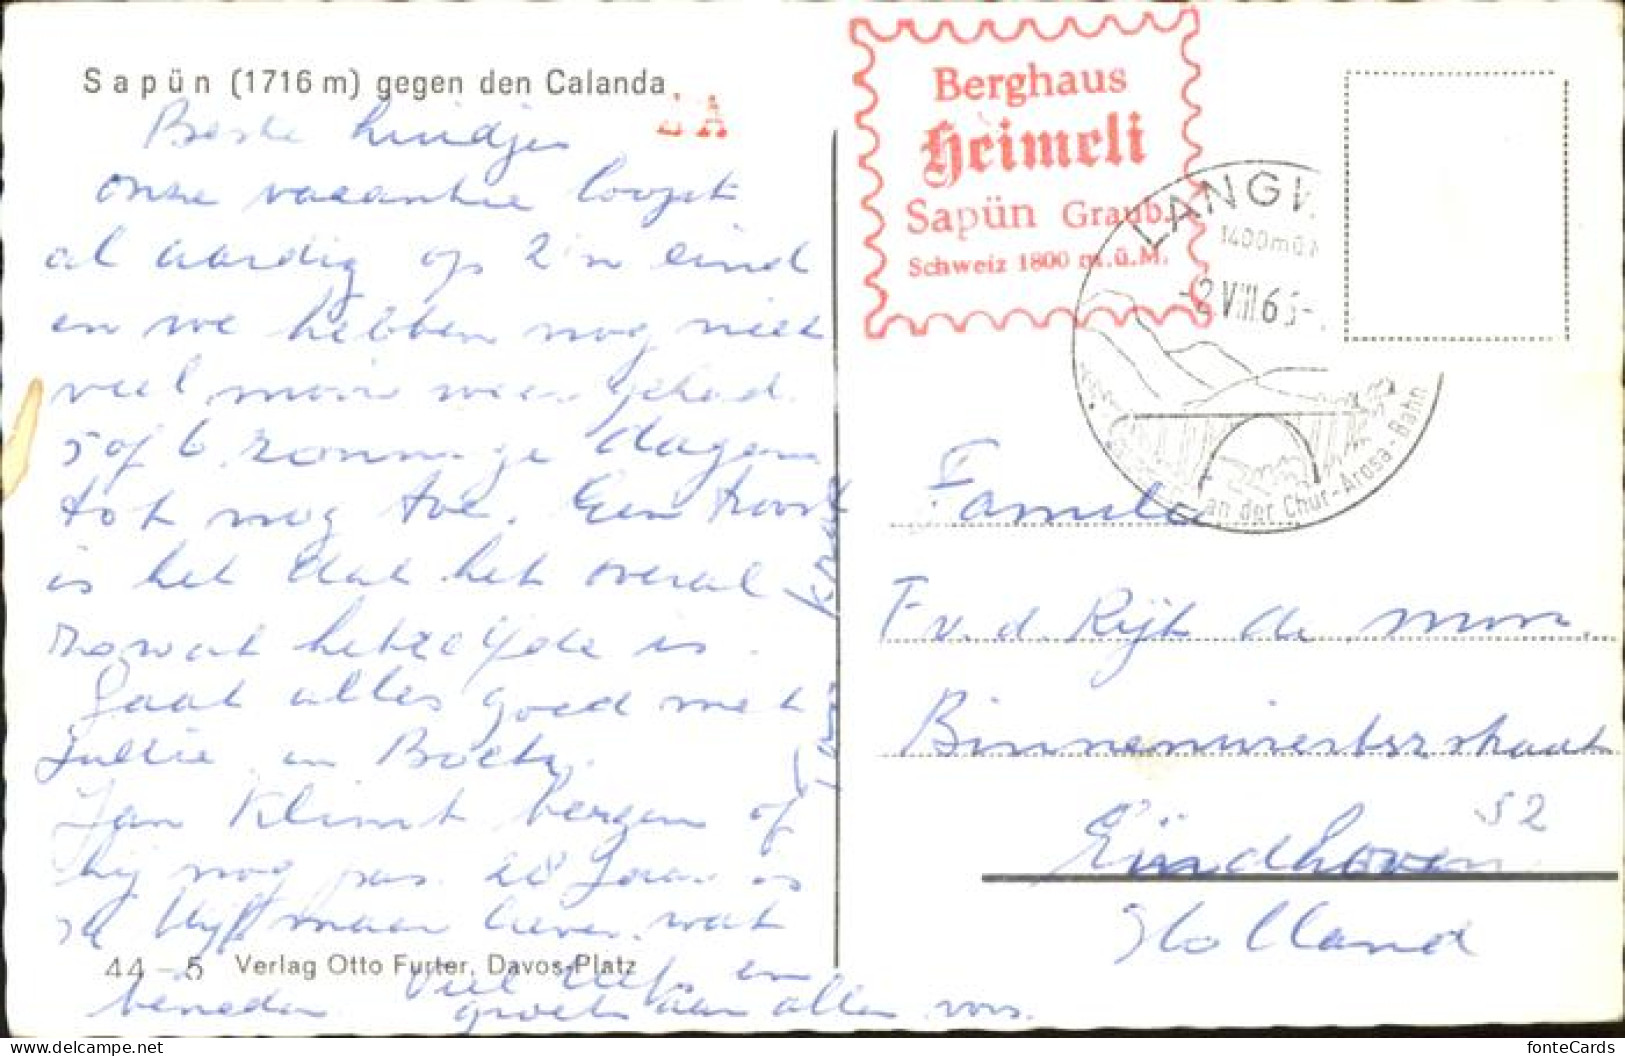 Sapün (1716 m) gegen den Calanda
Beste kindjes
onze vacantie loopt
al aardig op z'n eind
en we hebben nog niet
veel mooi weer gehad.
5 of 6 zonnige dagen
tot nog toe. Een troost
is het dat het overal
zowat hetzelfde is.
Gaat alles goed met
Jullie en Boety.
Jan Klimt bergen of
hij nog pas 20 Jaar is
blijft maar liever wat
beneden Viel lief en
groet aan allen van
44 - 5 Verlag Otto Furter, Davos-Platz
Berghaus
Heimeli
Sapün Graub.
Schweiz 1800 m.ü.M.
LANGW
1400mü.M
-2.VIII.6
an der Chur-Arosa-Bahn
Familie
F v. d. Rijt de
Binnenwiertzstraat
52
Eindhoven
Holland
www.delcampe.net
fonteCards